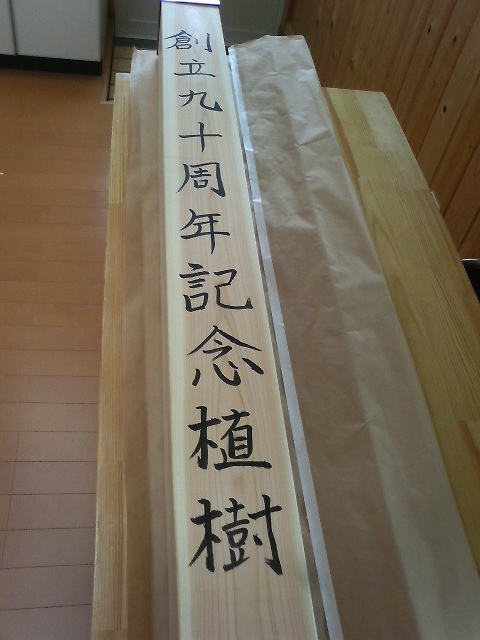 創立九十周年記念植樹